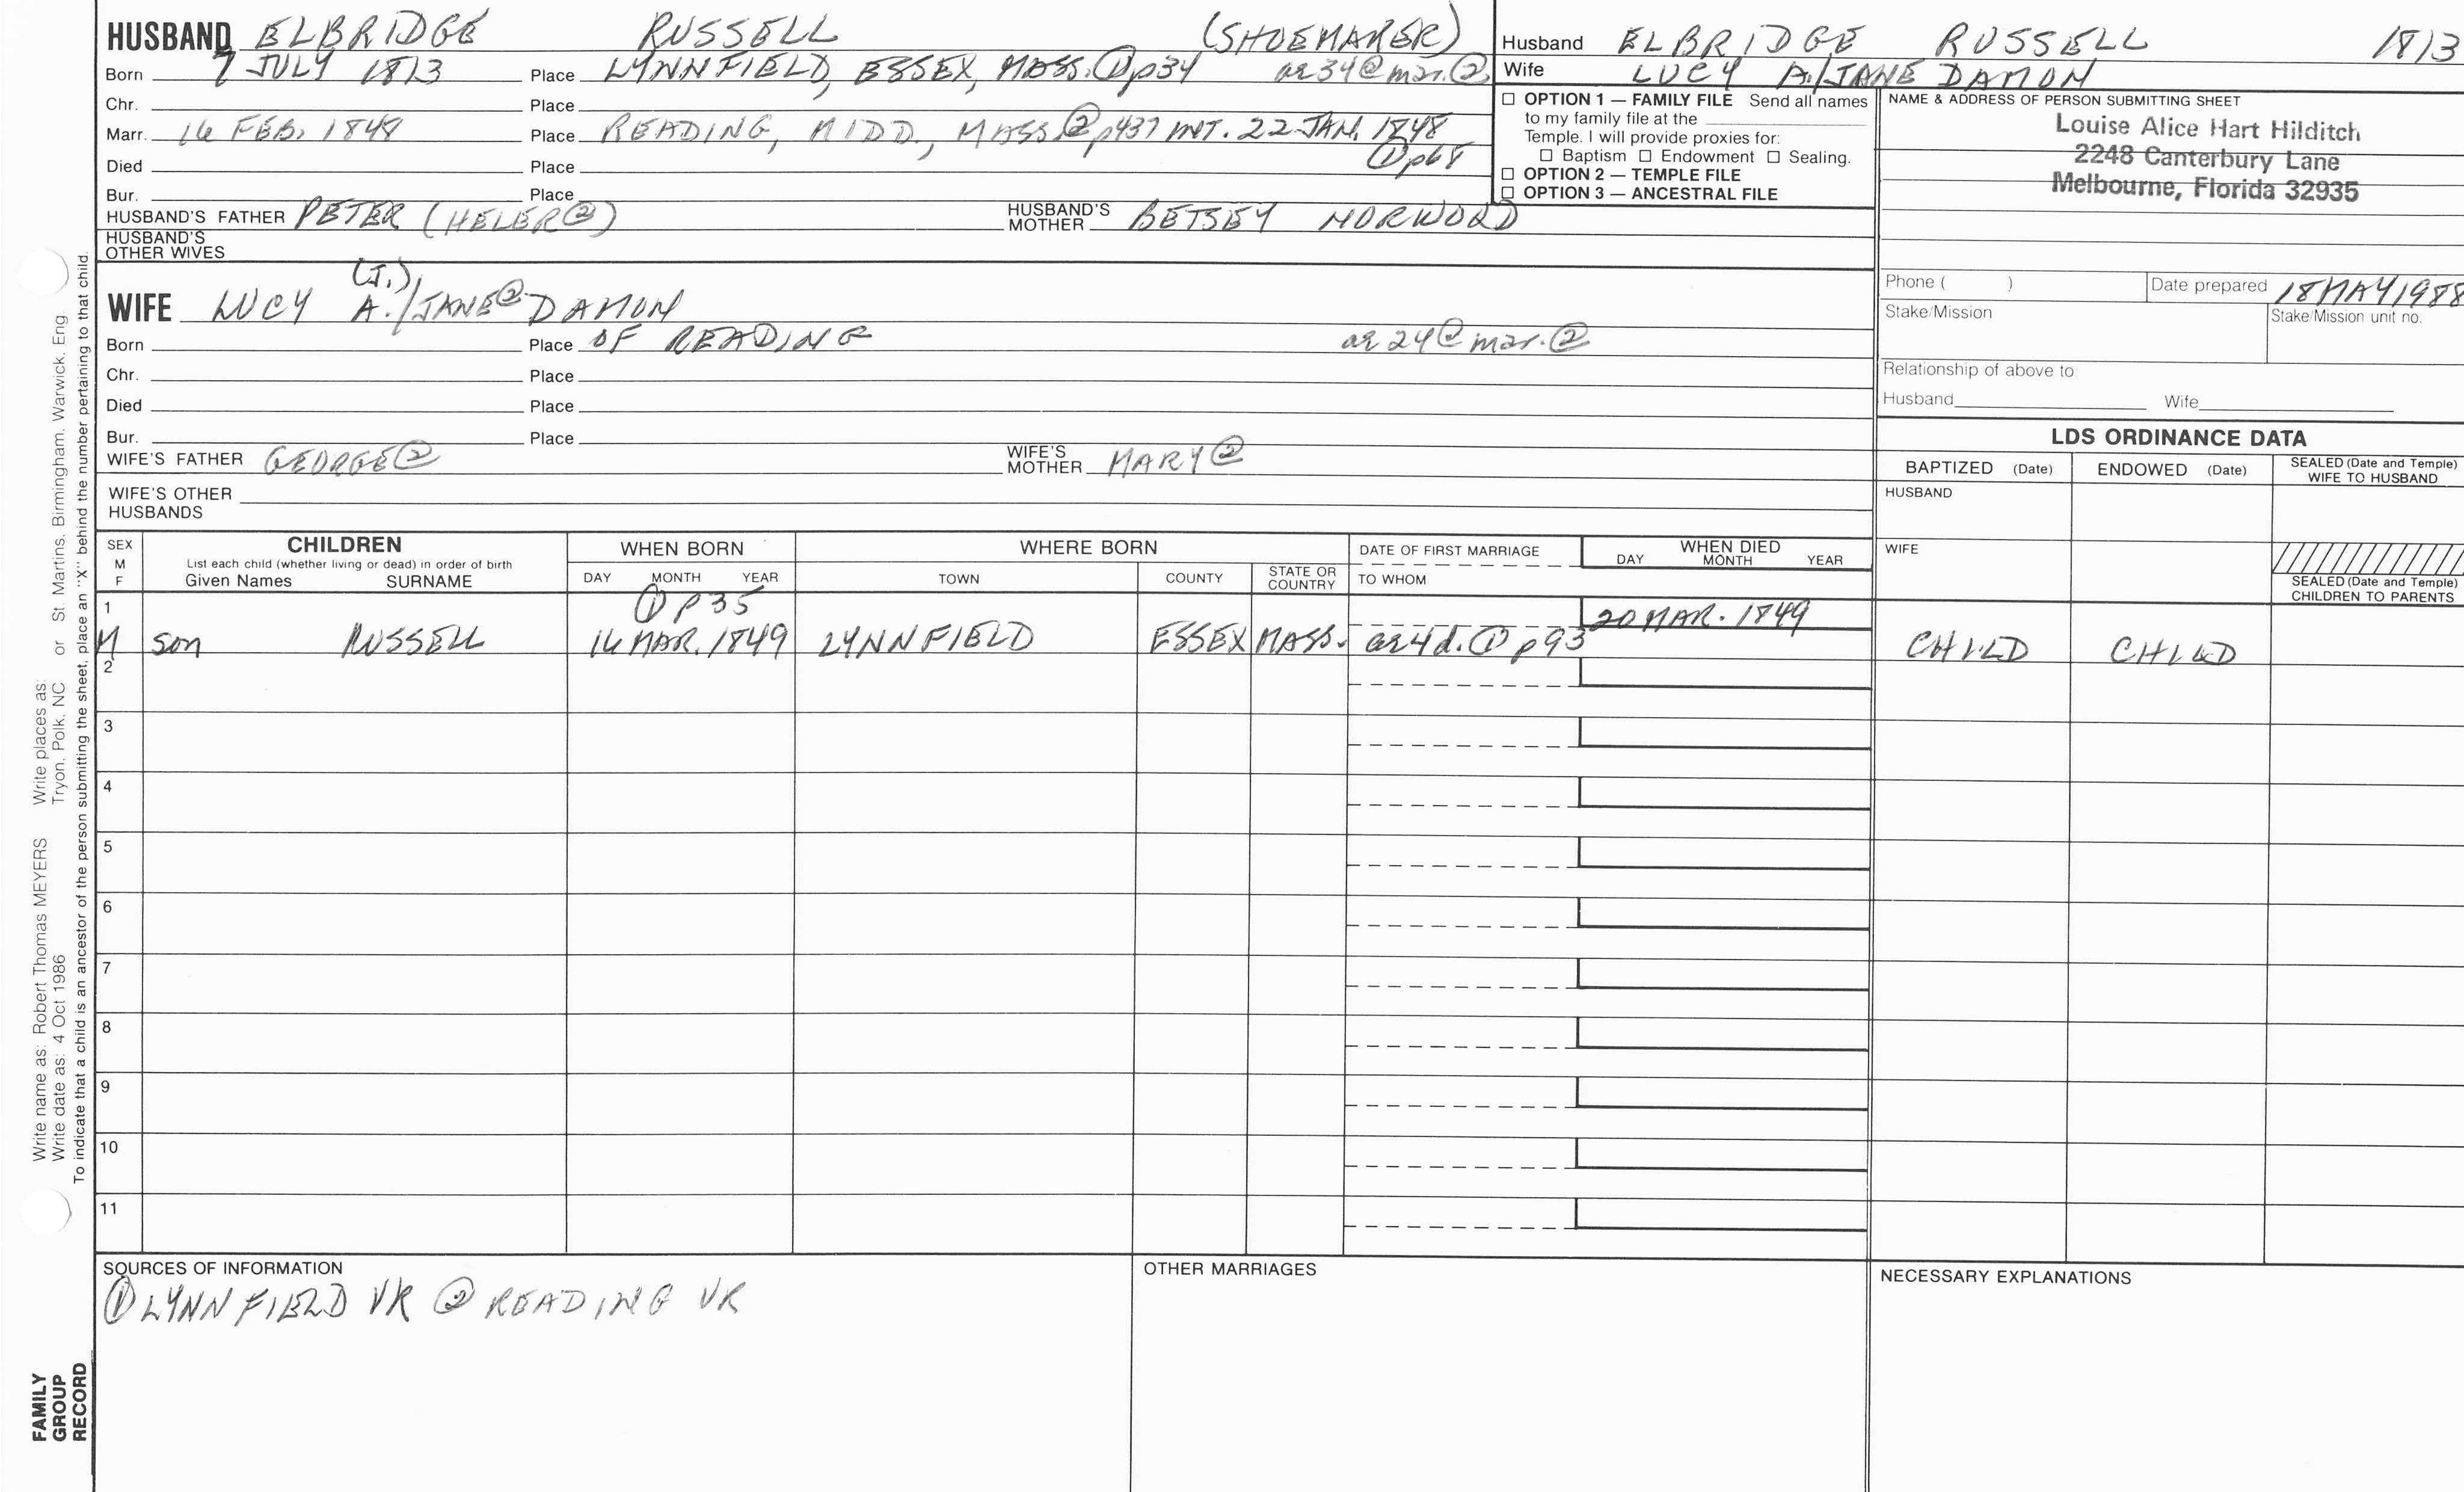 HUSBAND ELBRIDGE RUSSELL (SHOEMAKER)
Born 7 JULY 1813 Place LYNNFIELD, ESSEX, MASS. ① p34 ae 34 @ mar. ②
Chr. Place
Marr. 16 FEB. 1848 Place READING, MIDD., MASS. ② p437 INT. 22 JAN. 1848
① p68
Died Place
Bur. Place
HUSBAND'S FATHER PETER (HELER ②) HUSBAND'S MOTHER BETSEY NORWOOD
HUSBAND'S OTHER WIVES
Husband ELBRIDGE RUSSELL 1813
Wife LUCY A./JANE DAMON
☐ OPTION 1 — FAMILY FILE Send all names
to my family file at the
Temple. I will provide proxies for:
☐ Baptism ☐ Endowment ☐ Sealing.
☐ OPTION 2 — TEMPLE FILE
☐ OPTION 3 — ANCESTRAL FILE
NAME & ADDRESS OF PERSON SUBMITTING SHEET
Louise Alice Hart Hilditch
2248 Canterbury Lane
Melbourne, Florida 32935
Phone ( ) Date prepared 18 MAY 1988
Stake/Mission Stake/Mission unit no.
Relationship of above to
Husband Wife
(J.)
WIFE LUCY A./JANE ② DAMON
Born Place OF READING ae 24 @ mar. ②
Chr. Place
Died Place
Bur. Place
WIFE'S FATHER GEORGE ② WIFE'S MOTHER MARY ②
WIFE'S OTHER HUSBANDS
LDS ORDINANCE DATA
BAPTIZED (Date) ENDOWED (Date) SEALED (Date and Temple) WIFE TO HUSBAND
HUSBAND
WIFE
SEALED (Date and Temple) CHILDREN TO PARENTS
SEX M F
CHILDREN
List each child (whether living or dead) in order of birth
Given Names SURNAME
WHEN BORN
DAY MONTH YEAR
WHERE BORN
TOWN COUNTY STATE OR COUNTRY
DATE OF FIRST MARRIAGE
TO WHOM
WHEN DIED
DAY MONTH YEAR
1 ① p35 20 MAR. 1849
M son RUSSELL 16 MAR. 1849 LYNNFIELD ESSEX MASS. ae 4 d. ① p93 CHILD CHILD
2
3
4
5
6
7
8
9
10
11
SOURCES OF INFORMATION
① LYNNFIELD VR ② READING VR
OTHER MARRIAGES
NECESSARY EXPLANATIONS
Write name as: Robert Thomas MEYERS Write places as: St. Martins, Birmingham, Warwick, Eng
Write date as: 4 Oct 1986 Tryon, Polk, NC or
To indicate that a child is an ancestor of the person submitting the sheet, place an "X" behind the number pertaining to that child.
FAMILY
GROUP
RECORD